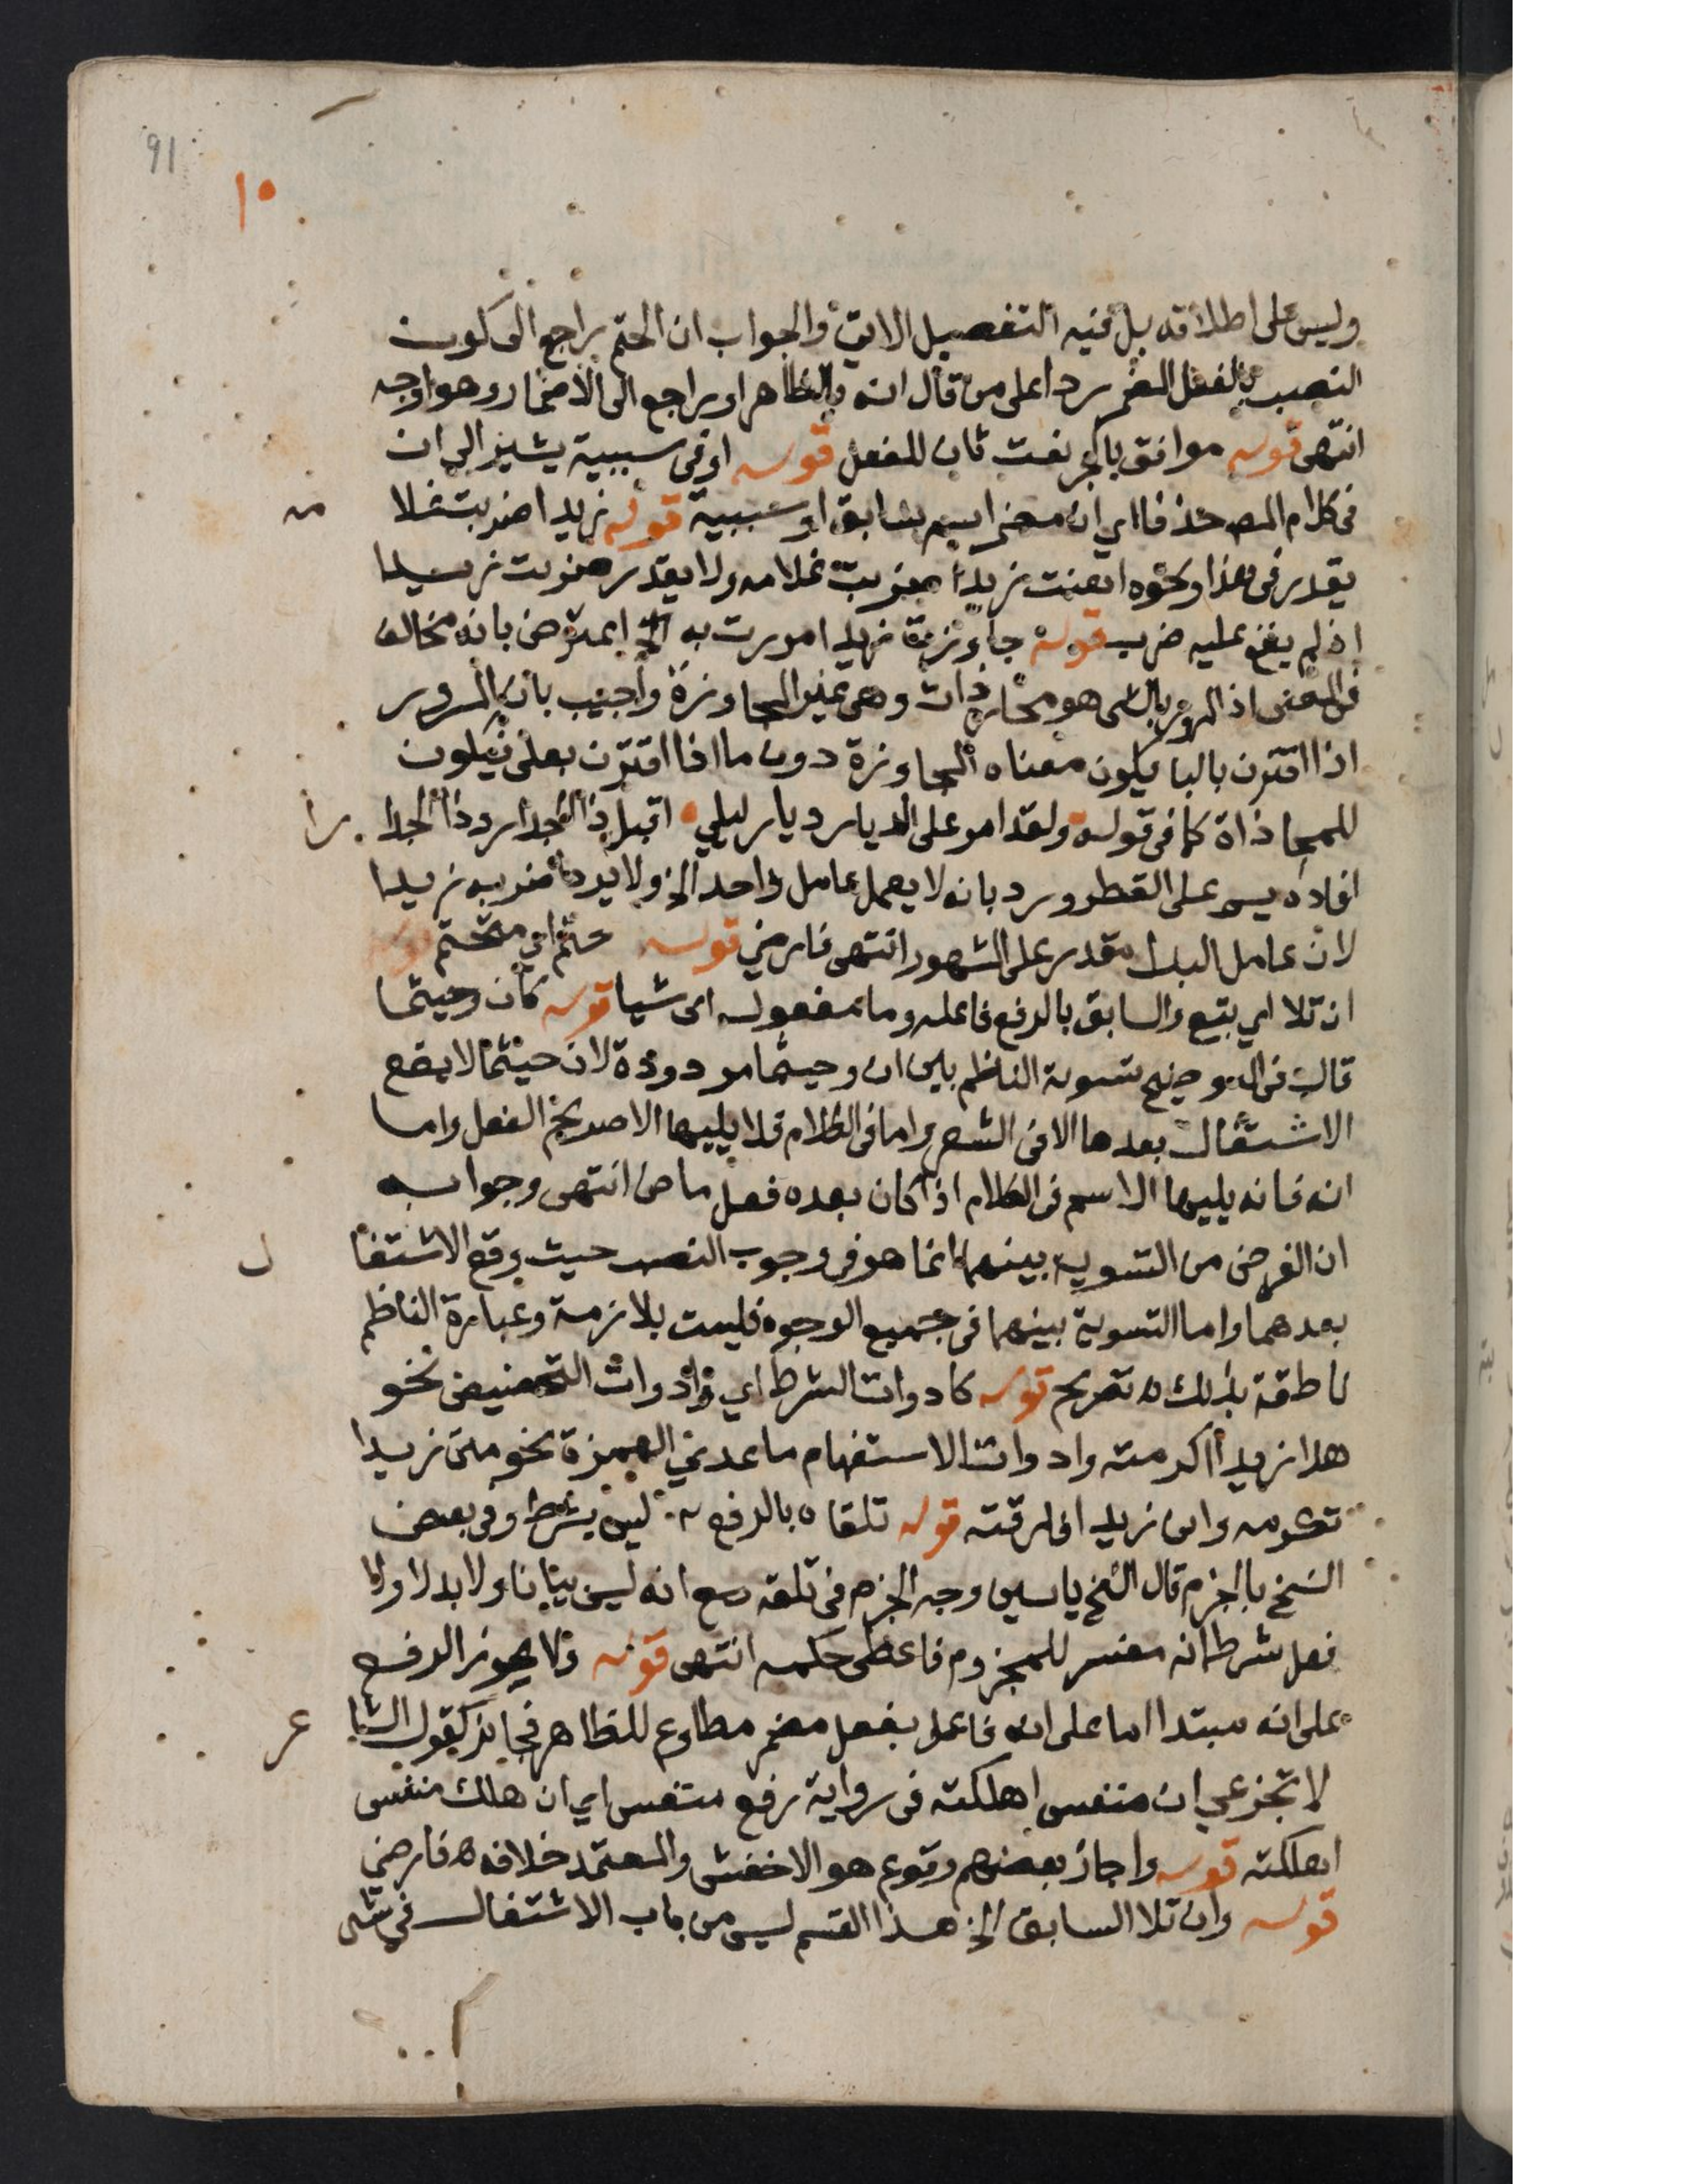 91
١٥
وليس على اطلاقه بل فيه التفصيل الاتي والجواب ان الحتم راجع الى كون
النصب بالفعل المضمر ردا على من قال انه بالظاهر او راجع الى الاضمار وهو اوجه
انتهى قوله موافق بالجر نعت ثان للفعل قوله او في سببية يشير الى ان
في كلام المص حذفا اي ان مضمر اسم سابق او سببية قوله زيدا ضربت غلا
مه
يقدر في هذا ونحوه اهنت زيدا ضربت غلامه ولا يقدر ضربت زيدا
اذ لم يقع عليه ضرب قوله جاوزت زيدا مررت به الخ اعترض بانه مخالف
في المعنى اذ المرور بالشي هو محاذات وهي غير المجاوزة واجيب بان المرور
اذا اقترن بالبا يكون معناه المجاوزة دون ما اذا اقترن بعلى فيكون
للمحاذاة كما في قوله ولقد امر على الديار ديار ليلي اقبل ذا الجدار وذا الجدا
را
افاده يس على القطر ورد بانه لا يعمل عامل واحد الخ ولا يرد ضربه زيدا
لان عامل البدل مقدر على المشهور انتهى فارضي قوله حتم اي متحتم قوله
ان تلا اي يتبع والسابق بالرفع فاعله وما مفعوله اى شيا قوله كان وحيثما
قال في التوضيح تسوية الناظم بين ان وحيثما مردودة لان حيثما لا يقع
الاشتغال بعدها الا في الشعر واما في الكلام فلا يليها الا صريح الفعل واما
ان فانه يليها الاسم في الكلام اذا كان بعده فعل ماض انتهى وجوابه
ان الغرض من التسوية بينهما انما هو في وجوب النصب حيث وقع الاشتغا
ل
بعدهما واما التسوية بينهما في جميع الوجوه فليست بلازمة وعبارة الناظم
ناطقة بذلك ه تصريح قوله كادوات الشرط اي وادوات التحضيض نحو
هلا زيدا اكرمته وادوات الاستفهام ما عدى الهمزة نحو متى زيدا
تكرمه واين زيدا فارقته قوله تلقاه بالرفع ليس بشرط وفي بعض
النسخ بالجزم قال الشيخ ياسين وجه الجزم في تلقه مع انه ليس بيانا ولا بدلا ولا
فعل شرط انه مفسر للمجزوم فاعطى حكمه انتهى قوله ولا يجوز الرفع
على انه مبتدا اما على انه فاعل بفعل مضمر مطاوع للظاهر فجايز كقول الشا
عر
لا تجزعي ان منفس اهلكته في رواية رفع منفس اي ان هلك منفس
اهلكته قوله واجاز بعضهم وقوع هو الاخفش والمعتمد خلافه ه فارضي
قوله وان تلا السابق الخ هذا القسم ليس من باب الاشتغال في شى